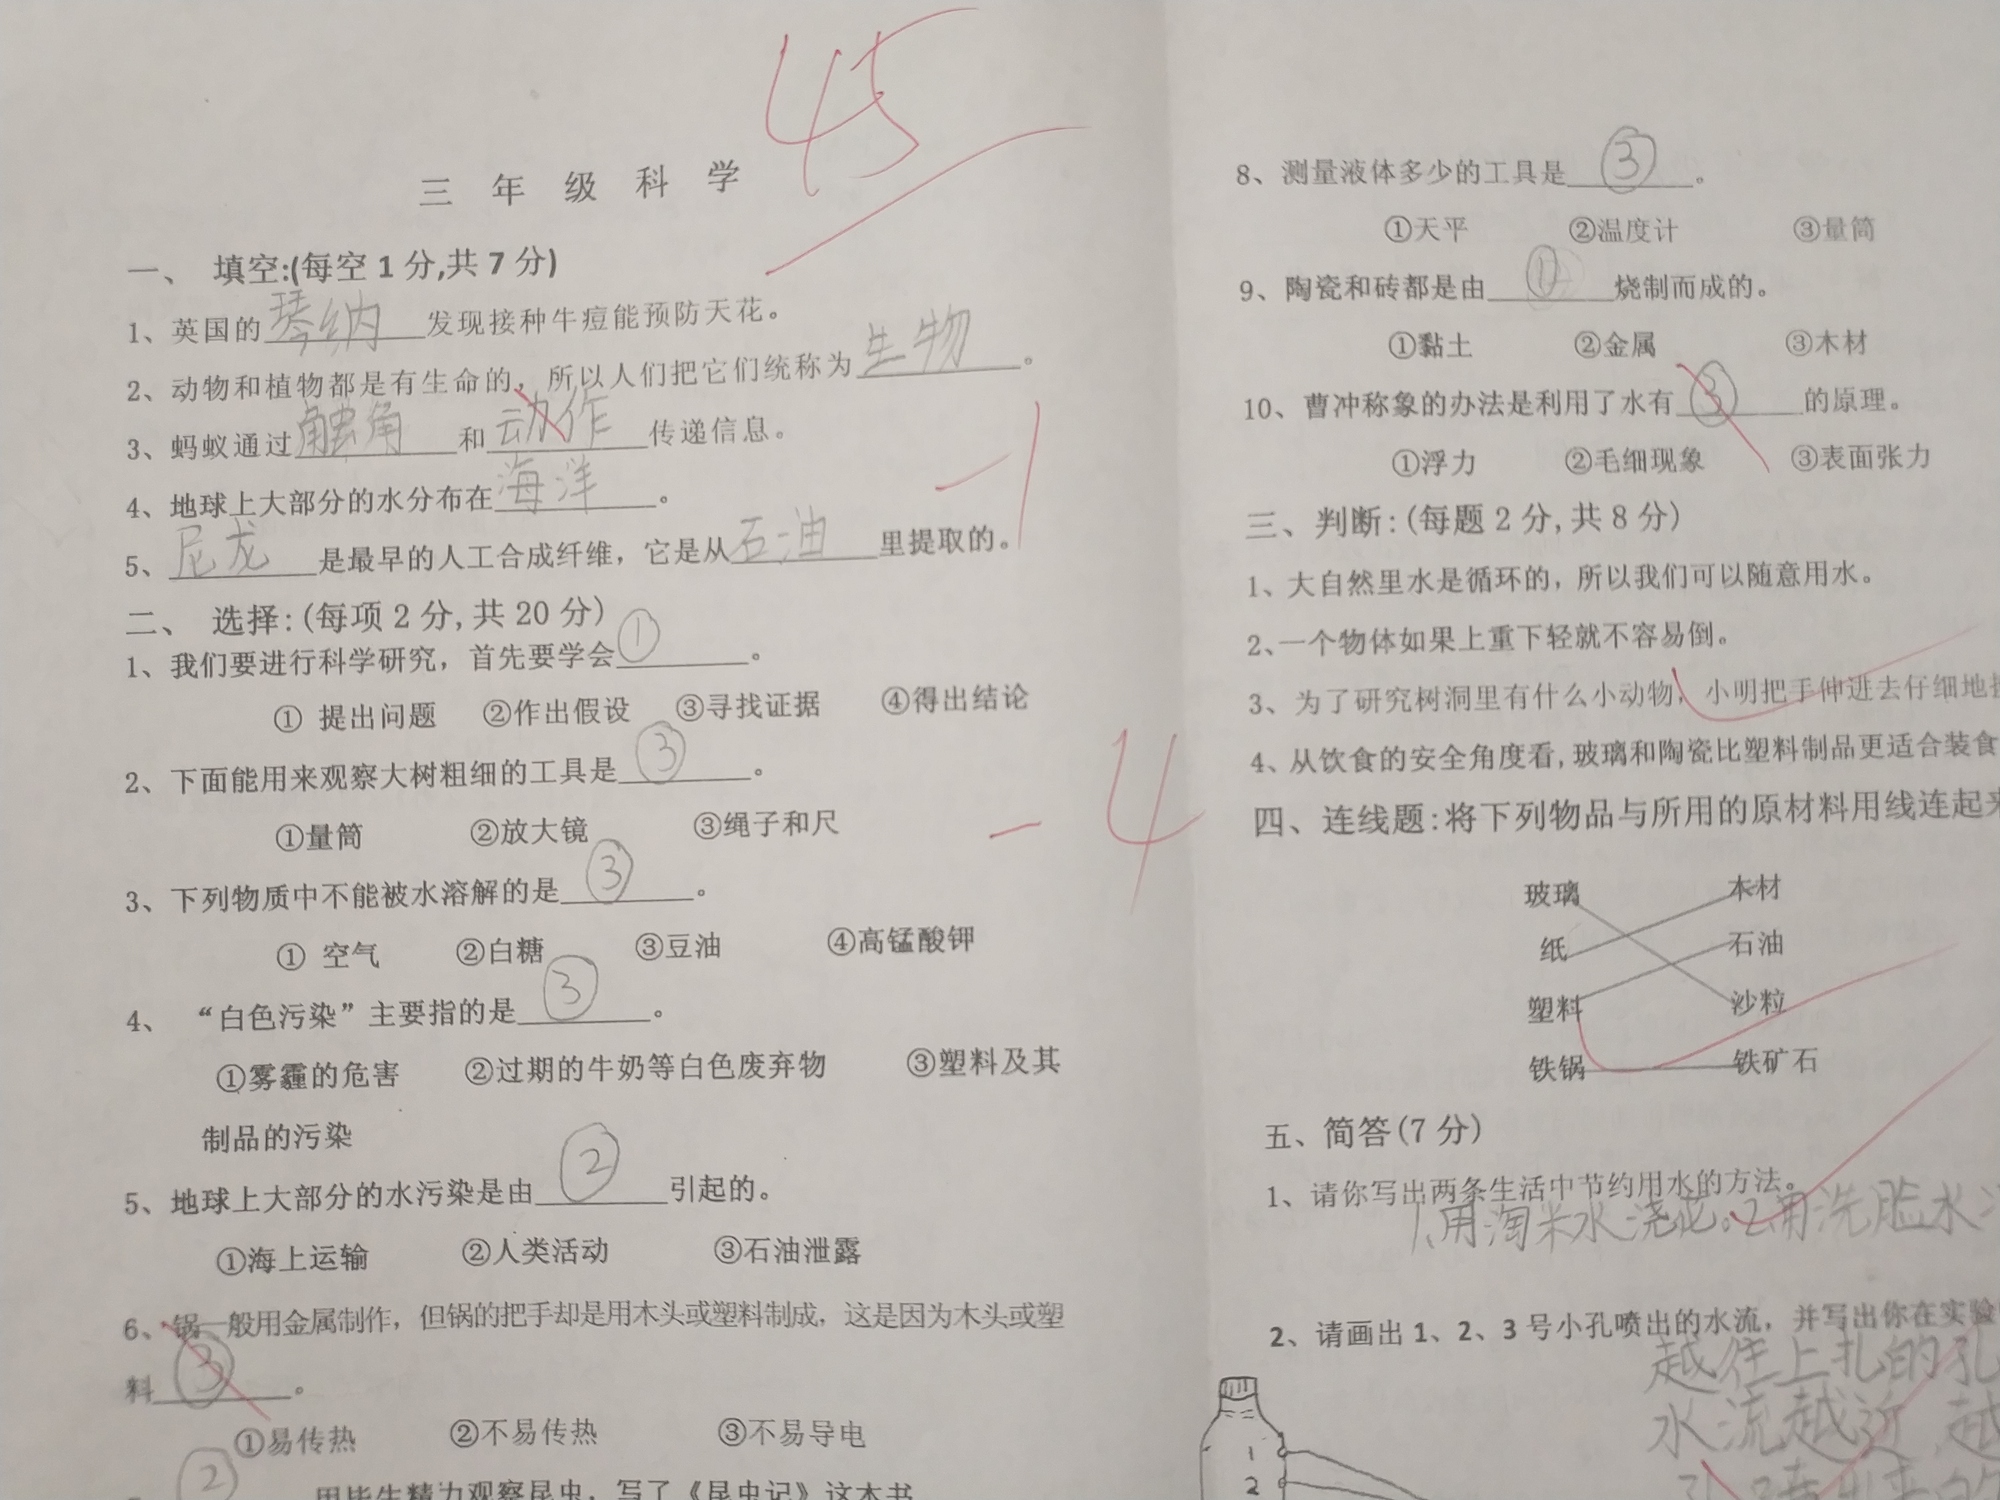 45
三 年 级 科 学
一、 填空:(每空1分,共7分)
1、英国的琴纳发现接种牛痘能预防天花。
2、动物和植物都是有生命的，所以人们把它们统称为生物。
3、蚂蚁通过触角和动作传递信息。
4、地球上大部分的水分布在海洋。
5、尼龙是最早的人工合成纤维，它是从石油里提取的。
-1
二、 选择:(每项2分,共20分)
1、我们要进行科学研究，首先要学会①。
① 提出问题 ②作出假设 ③寻找证据 ④得出结论
2、下面能用来观察大树粗细的工具是③。
①量筒 ②放大镜 ③绳子和尺
-4
3、下列物质中不能被水溶解的是③。
① 空气 ②白糖 ③豆油 ④高锰酸钾
4、“白色污染”主要指的是③。
①雾霾的危害 ②过期的牛奶等白色废弃物 ③塑料及其
制品的污染
5、地球上大部分的水污染是由②引起的。
①海上运输 ②人类活动 ③石油泄露
6、锅一般用金属制作，但锅的把手却是用木头或塑料制成，这是因为木头或塑
料③。
①易传热 ②不易传热 ③不易导电
②用毕生精力观察昆虫，写了《昆虫记》这本书
8、测量液体多少的工具是③。
①天平 ②温度计 ③量筒
9、陶瓷和砖都是由①烧制而成的。
①黏土 ②金属 ③木材
10、曹冲称象的办法是利用了水有③的原理。
①浮力 ②毛细现象 ③表面张力
三、判断:(每题2分,共8分)
1、大自然里水是循环的，所以我们可以随意用水。
2、一个物体如果上重下轻就不容易倒。
3、为了研究树洞里有什么小动物，小明把手伸进去仔细地
4、从饮食的安全角度看,玻璃和陶瓷比塑料制品更适合装食
四、连线题:将下列物品与所用的原材料用线连起来
玻璃 木材
纸 石油
塑料 沙粒
铁锅 铁矿石
五、简答(7分)
1、请你写出两条生活中节约用水的方法。
1、用淘米水浇花。2、用洗脸水
2、请画出1、2、3号小孔喷出的水流，并写出你在实验
越往上扎的孔
水流越近，越
1
2